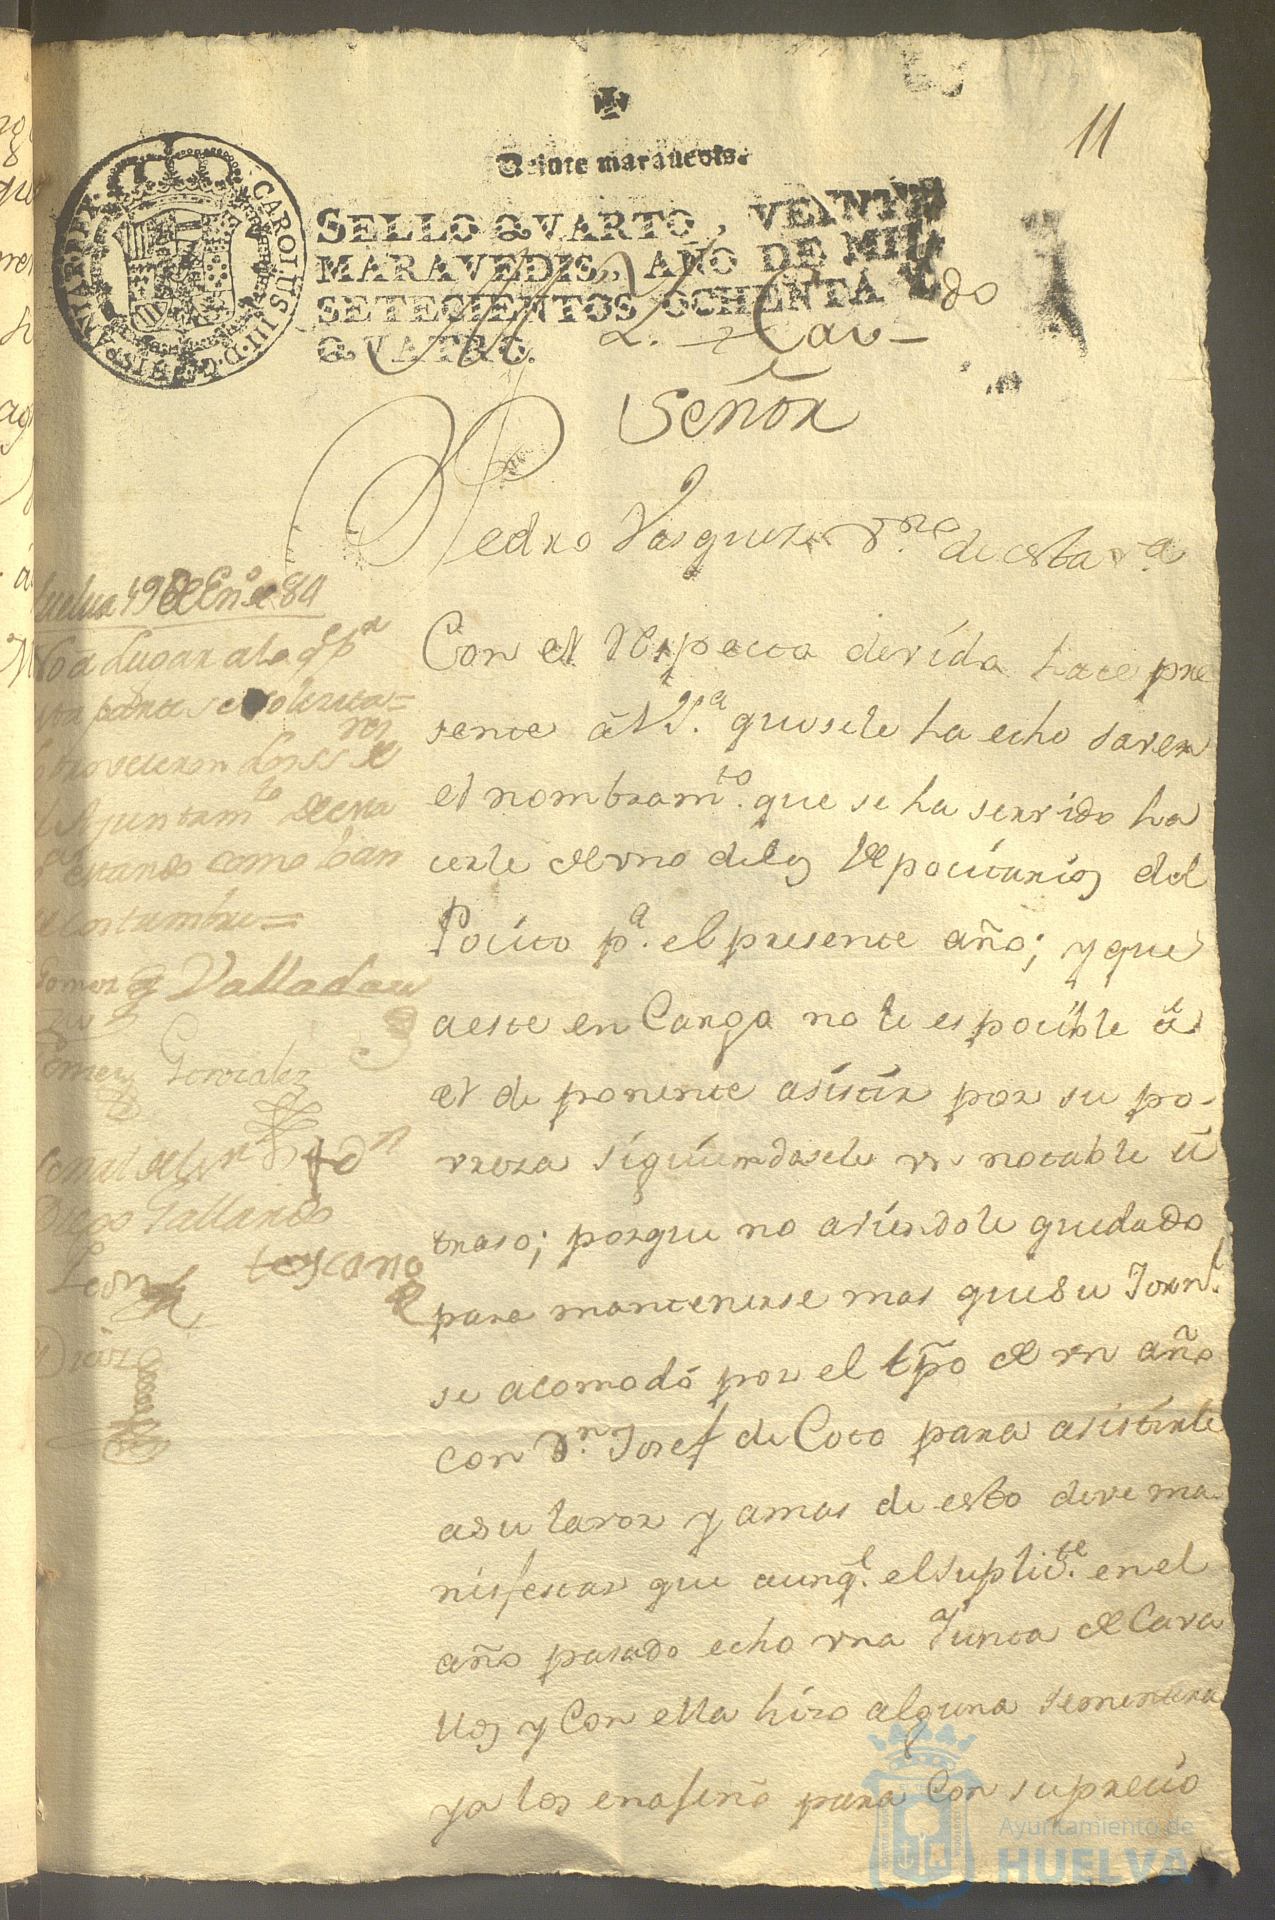 11
Veinte maravedis.
SELLO QVARTO, VEINTE
MARAVEDIS, AÑO DE MIL
SETECIENTOS OCHENTA Y
QVATRO.
CAROLUS III D G HISPANIAR REX
Yll.e Cav.do
Señor
Pedro Vasquez vno de esta v.a
Con el Respecto devído hace pre
sente â V.S.a que se le ha echo saver
el nombram.to que se ha servido ha
cerle de vno de los Depocitarios del
Pocito p.a el presente año; y que
a este encargo no le es pocible â
el deponente asistir por su po-
vreza síguiendosele vn notable a
traso; porque no aviendole quedado
para mantenerse mas que su Jorn.l
se acomodó por el tpõ de vn año
con D.n Josef de Coto para asistirle
a su lavor y amas de esto deve ma
nifestar que aunq.e el suplic.te en el
año pasado echo vna Junta de Cava
llos y con ella hizo alguna sementera
ya los enageno para con su precio
Huelva 19 de En.o de 84
No a Lugar a la q.e p.r
esta parte se solicita=
proveyeron los SS.res de
el Ayuntam.to de esta
estando como han
de costumbre=
Gomez Valladares
Gomez Gonzalez
Diego Gallardo
Leon toscano
Ayuntamiento de
HUELVA